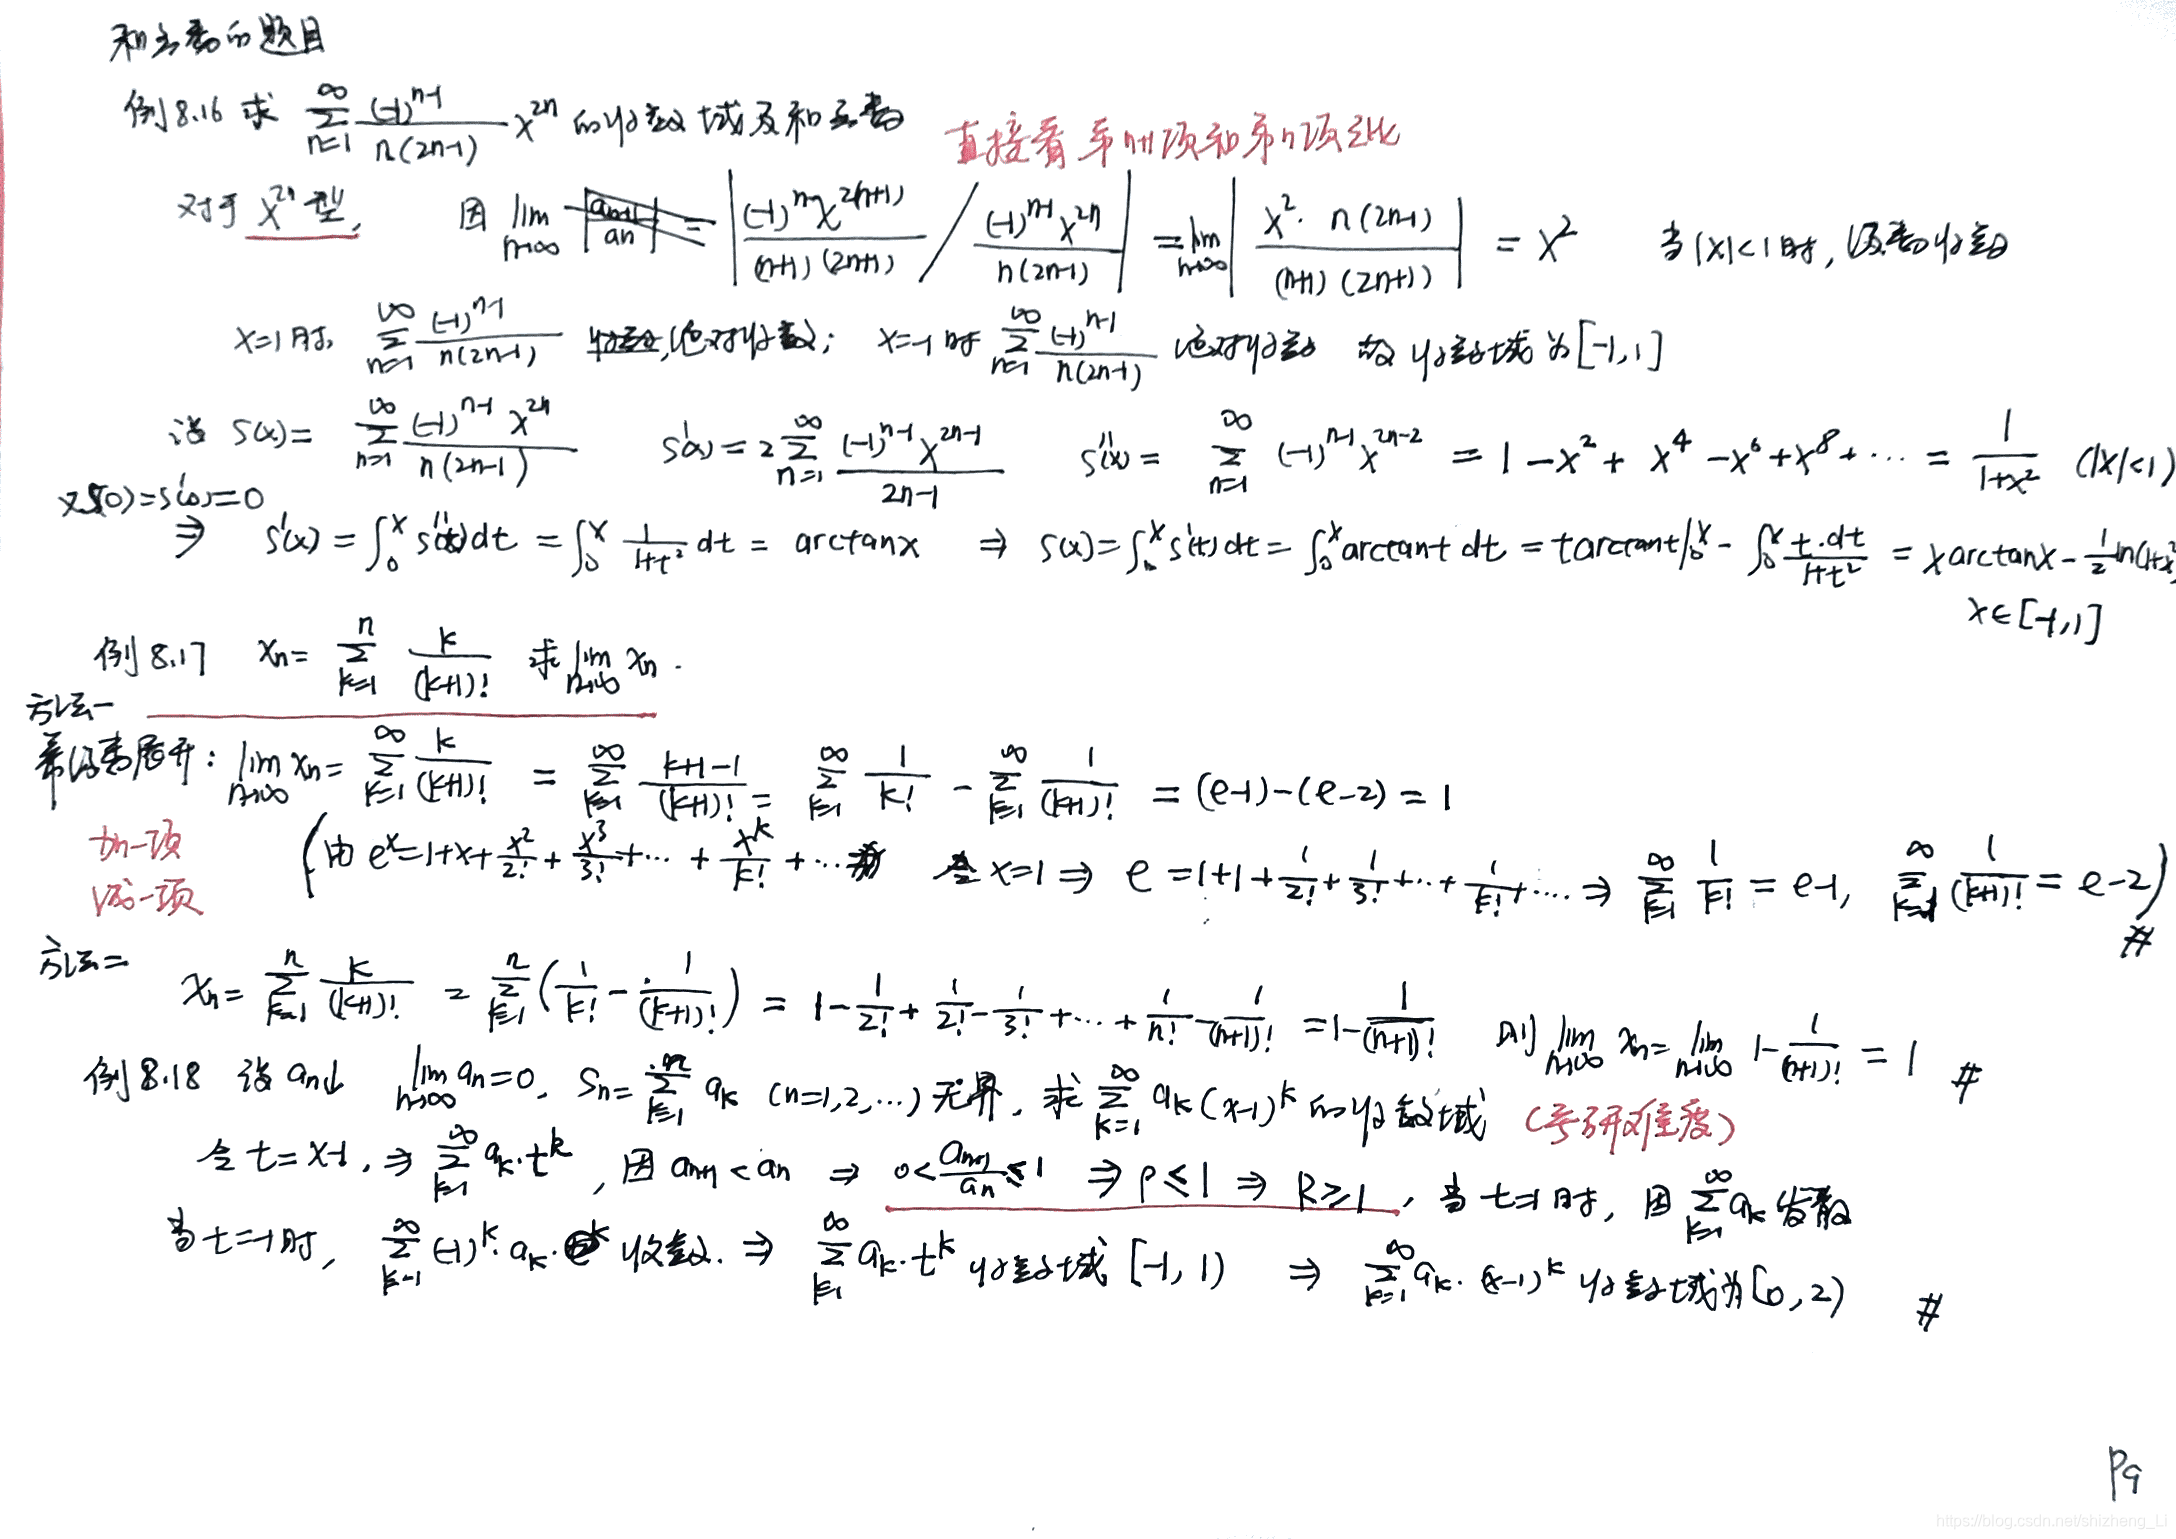 和函数的题目
例8.16 求 $\sum_{n=1}^{\infty}\frac{(-1)^{n-1}}{n(2n-1)}x^{2n}$ 的收敛域及和函数
直接看第n+1项和第n项之比
对于 $x^{2n}$ 型, 因 $\lim_{n\to\infty}$ $\left|\frac{a_{n+1}}{a_n}\right|=$ $\left|\frac{(-1)^n x^{2(n+1)}}{(n+1)(2n+1)}\Big/\frac{(-1)^{n-1}x^{2n}}{n(2n-1)}\right|=\lim_{n\to\infty}\left|\frac{x^2\cdot n(2n-1)}{(n+1)(2n+1)}\right|=x^2$ 当|x|<1时, 级数收敛
x=1时, $\sum_{n=1}^{\infty}\frac{(-1)^{n-1}}{n(2n-1)}$ 收敛,(绝对收敛); x=-1时 $\sum_{n=1}^{\infty}\frac{(-1)^{n-1}}{n(2n-1)}$ 绝对收敛 故收敛域为[-1,1]
设 $S(x)=\sum_{n=1}^{\infty}\frac{(-1)^{n-1}x^{2n}}{n(2n-1)}$ $S'(x)=2\sum_{n=1}^{\infty}\frac{(-1)^{n-1}x^{2n-1}}{2n-1}$ $S''(x)=\sum_{n=1}^{\infty}(-1)^{n-1}x^{2n-2}=1-x^2+x^4-x^6+x^8+\cdots=\frac{1}{1+x^2}$ (|x|<1)
又S(0)=S'(0)=0
⇒ $S'(x)=\int_0^x S''(t)dt=\int_0^x\frac{1}{1+t^2}dt=\arctan x$ ⇒ $S(x)=\int_0^x S'(t)dt=\int_0^x\arctan t\,dt=t\arctan t|_0^x-\int_0^x\frac{t\cdot dt}{1+t^2}=x\arctan x-\frac{1}{2}\ln(1+x^2)$
x∈[-1,1]
例8.17 $x_n=\sum_{k=1}^{n}\frac{k}{(k+1)!}$ 求 $\lim_{n\to\infty}x_n$.
方法一
幂级数展开: $\lim_{n\to\infty}x_n=\sum_{k=1}^{\infty}\frac{k}{(k+1)!}=\sum_{k=1}^{\infty}\frac{k+1-1}{(k+1)!}=\sum_{k=1}^{\infty}\frac{1}{k!}-\sum_{k=1}^{\infty}\frac{1}{(k+1)!}=(e-1)-(e-2)=1$
加一项
减一项
(由 $e^x=1+x+\frac{x^2}{2!}+\frac{x^3}{3!}+\cdots+\frac{x^k}{k!}+\cdots$ 令x=1 ⇒ $e=1+1+\frac{1}{2!}+\frac{1}{3!}+\cdots+\frac{1}{k!}+\cdots$ ⇒ $\sum_{k=1}^{\infty}\frac{1}{k!}=e-1$, $\sum_{k=1}^{\infty}\frac{1}{(k+1)!}=e-2$) #
方法二
$x_n=\sum_{k=1}^{n}\frac{k}{(k+1)!}=\sum_{k=1}^{n}\left(\frac{1}{k!}-\frac{1}{(k+1)!}\right)=1-\frac{1}{2!}+\frac{1}{2!}-\frac{1}{3!}+\cdots+\frac{1}{n!}-\frac{1}{(n+1)!}=1-\frac{1}{(n+1)!}$ 则 $\lim_{n\to\infty}x_n=\lim_{n\to\infty}1-\frac{1}{(n+1)!}=1$ #
例8.18 设 $a_n$↓ $\lim_{n\to\infty}a_n=0$, $S_n=\sum_{k=1}^{n}a_k$ (n=1,2,…) 无界, 求 $\sum_{k=1}^{\infty}a_k(x-1)^k$ 的收敛域 (考研难度)
令t=x-1, ⇒ $\sum_{k=1}^{\infty}a_k\cdot t^k$, 因 $a_{n+1}<a_n$ ⇒ $0<\frac{a_{n+1}}{a_n}\leq 1$ ⇒ ρ≤1 ⇒ R≥1, 当t=1时, 因 $\sum_{k=1}^{\infty}a_k$ 发散
当t=-1时, $\sum_{k=1}^{\infty}(-1)^k\cdot a_k$ 收敛. ⇒ $\sum_{k=1}^{\infty}a_k\cdot t^k$ 收敛域[-1,1) ⇒ $\sum_{k=1}^{\infty}a_k\cdot(x-1)^k$ 收敛域为[0,2) #
P9
https://blog.csdn.net/shizheng_Li